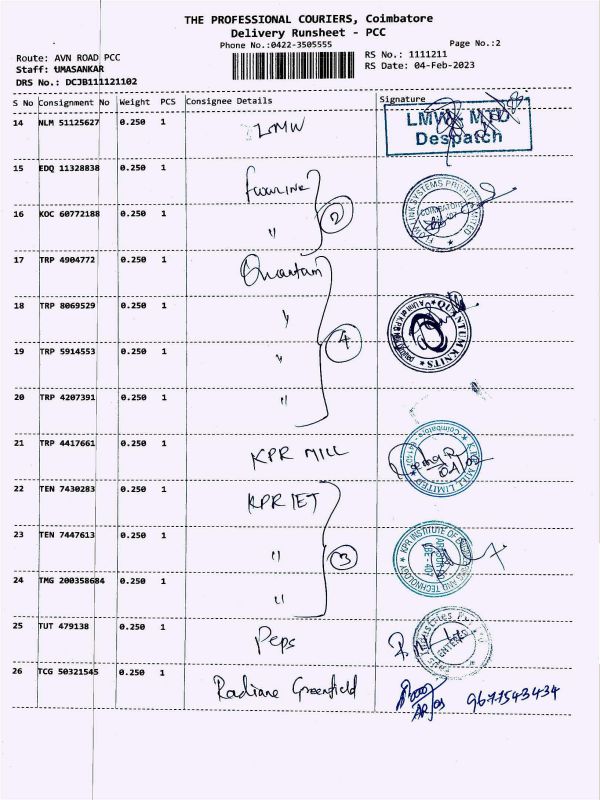 THE PROFESSIONAL COURIERS, Coimbatore
Delivery Runsheet - PCC
Phone No.:0422-3505555
Page No.:2
Route: AVN ROAD PCC
RS No.: 1111211
Staff: UMASANKAR
RS Date: 04-Feb-2023
DRS No.: DCJB111121102
S No Consignment No Weight PCS Consignee Details Signature
14 NLM 51125627 0.250 1 LMW
LMW MTD
Despatch
15 EDQ 11328838 0.250 1
FLOW LINK SYSTEMS PRIVATE LIMITED
COIMBATORE
16 KOC 60772188 0.250 1 " 2
17 TRP 4904772 0.250 1 Quantum
18 TRP 8069529 0.250 1 "
QUANTUM KNITS
19 TRP 5914553 0.250 1 " 4
20 TRP 4207391 0.250 1 "
21 TRP 4417661 0.250 1 KPR MILL
K.P.R. MILL LIMITED
Coimbatore - 641407
22 TEN 7430283 0.250 1 KPR IET
23 TEN 7447613 0.250 1 " 3
KPR INSTITUTE OF ENGINEERING AND TECHNOLOGY
24 TMG 200358684 0.250 1 "
25 TUT 479138 0.250 1 Peps
26 TCG 50321545 0.250 1 Radiane Greenfield
9677543434